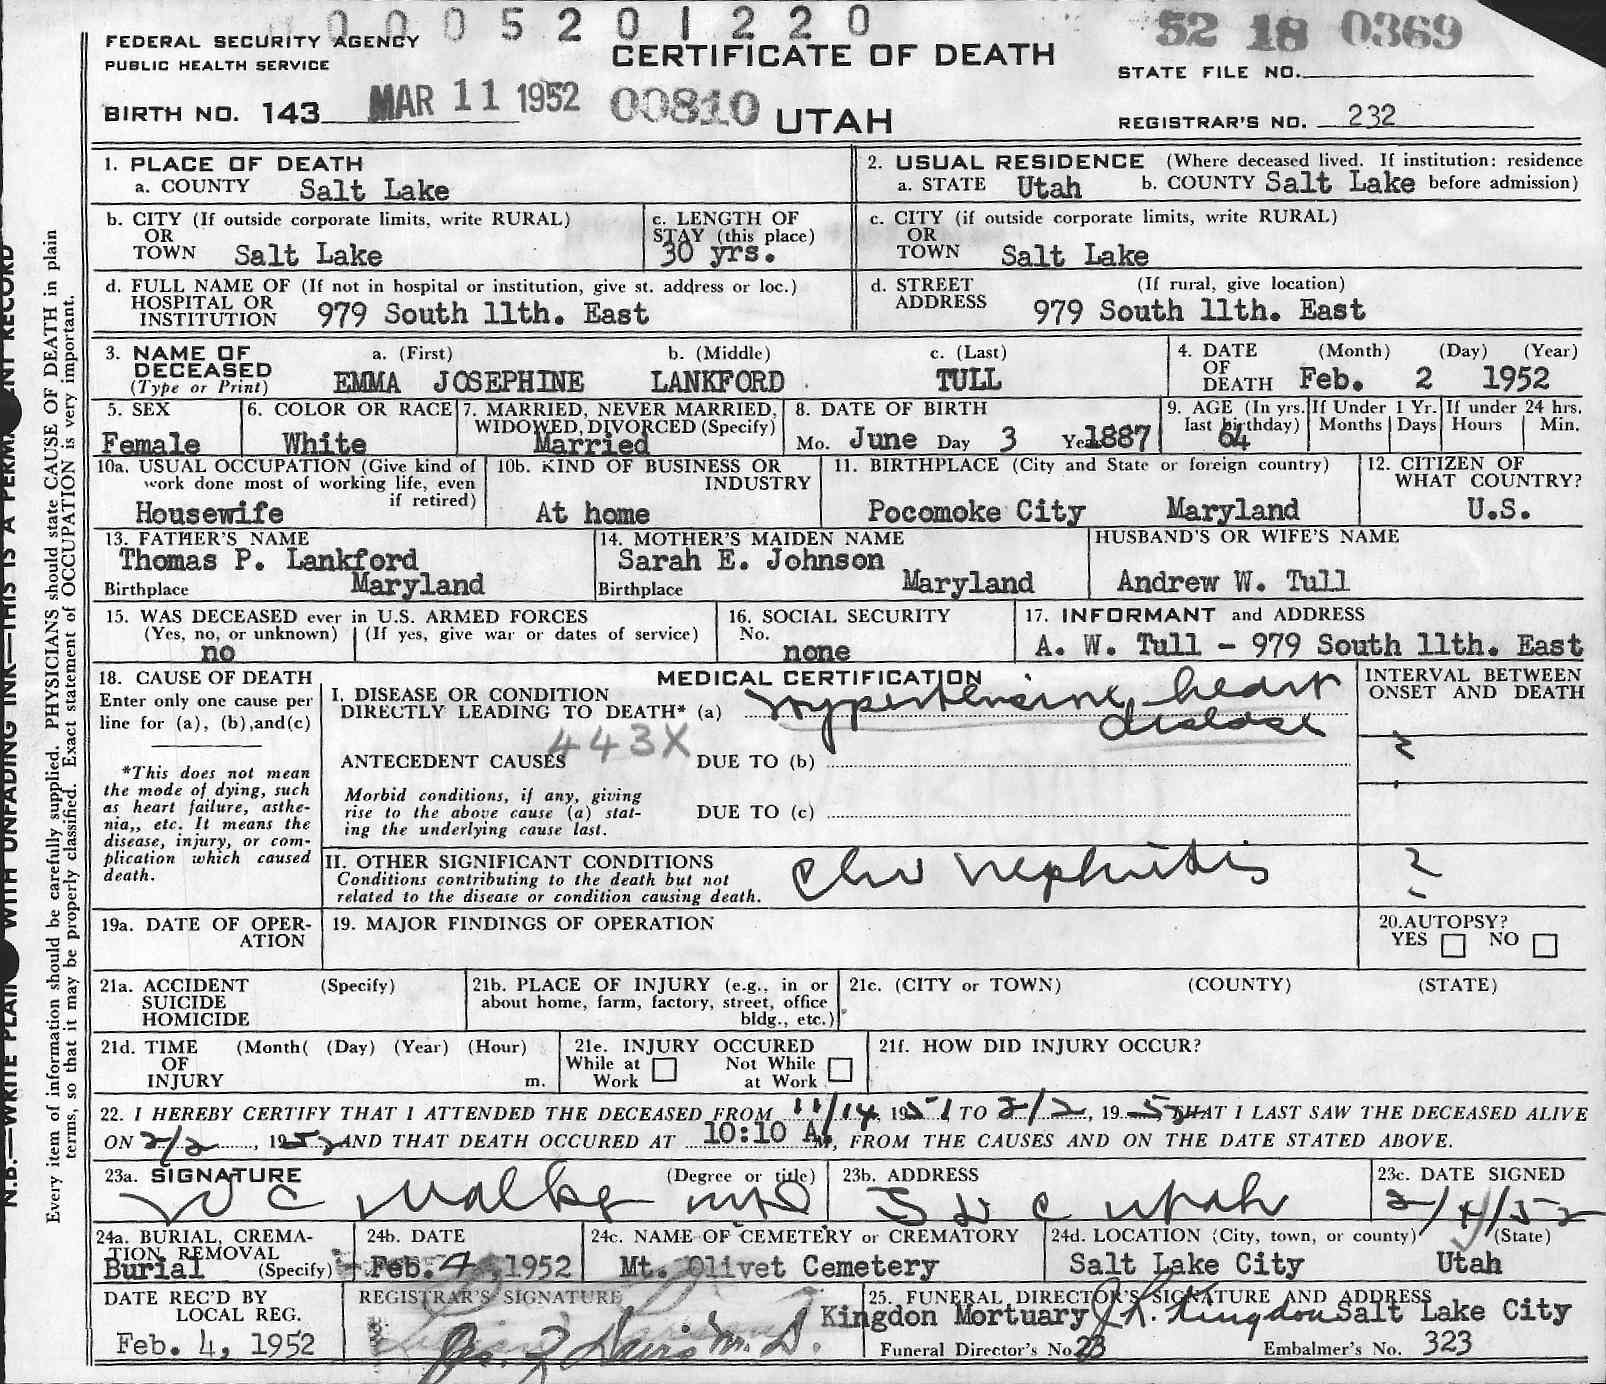 0005201220
52 18 0369
FEDERAL SECURITY AGENCY
PUBLIC HEALTH SERVICE
CERTIFICATE OF DEATH
STATE FILE NO.
BIRTH NO. 143 MAR 11 1952 00810 UTAH
REGISTRAR'S NO. 232
1. PLACE OF DEATH
a. COUNTY Salt Lake
2. USUAL RESIDENCE (Where deceased lived. If institution: residence
a. STATE Utah b. COUNTY Salt Lake before admission)
b. CITY (If outside corporate limits, write RURAL)
OR
TOWN Salt Lake
c. LENGTH OF
STAY (this place)
30 yrs.
c. CITY (if outside corporate limits, write RURAL)
OR
TOWN Salt Lake
d. FULL NAME OF (If not in hospital or institution, give st. address or loc.)
HOSPITAL OR
INSTITUTION 979 South 11th. East
d. STREET (If rural, give location)
ADDRESS 979 South 11th. East
3. NAME OF
DECEASED
(Type or Print)
a. (First) b. (Middle) c. (Last)
EMMA JOSEPHINE LANKFORD TULL
4. DATE (Month) (Day) (Year)
OF
DEATH Feb. 2 1952
5. SEX
Female
6. COLOR OR RACE
White
7. MARRIED, NEVER MARRIED,
WIDOWED, DIVORCED (Specify)
Married
8. DATE OF BIRTH
Mo. June Day 3 Year 1887
9. AGE (In yrs.
last birthday)
64
If Under 1 Yr.
Months Days
If under 24 hrs.
Hours Min.
10a. USUAL OCCUPATION (Give kind of
work done most of working life, even
if retired)
Housewife
10b. KIND OF BUSINESS OR
INDUSTRY
At home
11. BIRTHPLACE (City and State or foreign country)
Pocomoke City Maryland
12. CITIZEN OF
WHAT COUNTRY?
U.S.
13. FATHER'S NAME
Thomas P. Lankford
Birthplace Maryland
14. MOTHER'S MAIDEN NAME
Sarah E. Johnson
Birthplace Maryland
HUSBAND'S OR WIFE'S NAME
Andrew W. Tull
15. WAS DECEASED ever in U.S. ARMED FORCES
(Yes, no, or unknown) (If yes, give war or dates of service)
no
16. SOCIAL SECURITY
No.
none
17. INFORMANT and ADDRESS
A. W. Tull - 979 South 11th. East
18. CAUSE OF DEATH
Enter only one cause per
line for (a), (b), and (c)
*This does not mean
the mode of dying, such
as heart failure, asthe-
nia,, etc. It means the
disease, injury, or com-
plication which caused
death.
MEDICAL CERTIFICATION
I. DISEASE OR CONDITION
DIRECTLY LEADING TO DEATH* (a) Hypertensive heart
disease
443X
ANTECEDENT CAUSES DUE TO (b)
Morbid conditions, if any, giving
rise to the above cause (a) stat-
ing the underlying cause last.
DUE TO (c)
INTERVAL BETWEEN
ONSET AND DEATH
?
II. OTHER SIGNIFICANT CONDITIONS
Conditions contributing to the death but not
related to the disease or condition causing death.
Chr nephritis
?
19a. DATE OF OPER-
ATION
19. MAJOR FINDINGS OF OPERATION
20. AUTOPSY?
YES NO
21a. ACCIDENT (Specify)
SUICIDE
HOMICIDE
21b. PLACE OF INJURY (e.g., in or
about home, farm, factory, street, office
bldg., etc.)
21c. (CITY or TOWN) (COUNTY) (STATE)
21d. TIME (Month( (Day) (Year) (Hour)
OF
INJURY m.
21e. INJURY OCCURED
While at Work Not While at Work
21f. HOW DID INJURY OCCUR?
22. I HEREBY CERTIFY THAT I ATTENDED THE DECEASED FROM 11/14, 1951 TO 2/2, 1952 THAT I LAST SAW THE DECEASED ALIVE
ON 2/2, 1952 AND THAT DEATH OCCURED AT 10:10 A M, FROM THE CAUSES AND ON THE DATE STATED ABOVE.
23a. SIGNATURE (Degree or title)
W C Walker MD
23b. ADDRESS
S L C Utah
23c. DATE SIGNED
2/4/52
24a. BURIAL, CREMA-
TION, REMOVAL
Burial (Specify)
24b. DATE
Feb. 4, 1952
24c. NAME OF CEMETERY or CREMATORY
Mt. Olivet Cemetery
24d. LOCATION (City, town, or county) (State)
Salt Lake City Utah
DATE REC'D BY
LOCAL REG.
Feb. 4, 1952
REGISTRAR'S SIGNATURE
Davis M. D.
25. FUNERAL DIRECTOR'S SIGNATURE AND ADDRESS
Kingdon Mortuary J. R. Kingdon Salt Lake City
Funeral Director's No. 23 Embalmer's No. 323
Every item of information should be carefully supplied. PHYSICIANS should state CAUSE OF DEATH in plain
terms, so that it may be properly classified. Exact statement of OCCUPATION is very important.